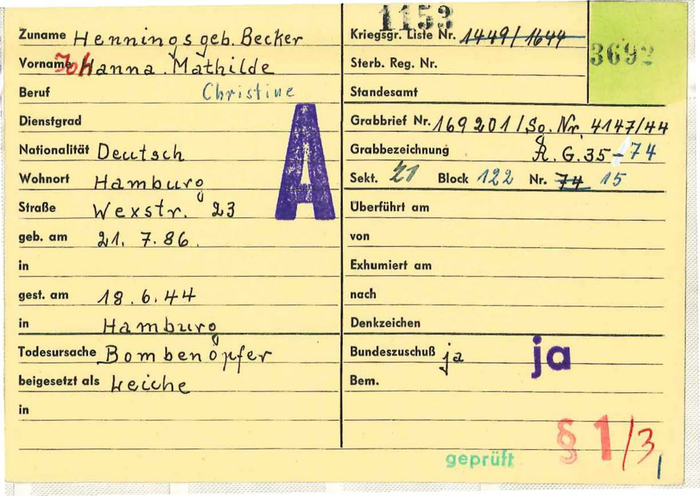 1153
Zuname Hennings geb. Becker
Vorname Johanna. Mathilde
Beruf Christine
Dienstgrad
Nationalität Deutsch
Wohnort Hamburg
Straße Wexstr. 23
geb. am 21. 7. 86.
in
gest. am 18. 6. 44
in Hamburg
Todesursache Bombenopfer
beigesetzt als Leiche
in
A
Kriegsgr. Liste Nr. 1449/1644
3692
Sterb. Reg. Nr.
Standesamt
Grabbrief Nr. 169201/So. Nr. 4147/44
Grabbezeichnung R. G. 35-74
Sekt. 21 Block 122 Nr. 74 15
Überführt am
von
Exhumiert am
nach
Denkzeichen
Bundeszuschuß ja ja
Bem.
geprüft § 1/3,